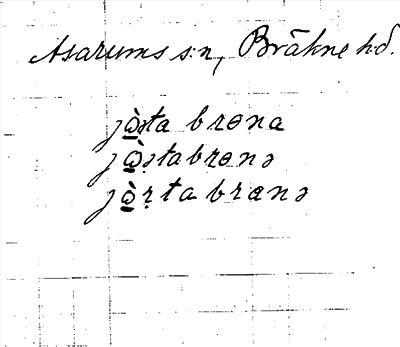 Asarums s:n, Bräkne h:d.
jòəta brɵna
jò̱ətabrɵnə
jò̱rtabrɶnə